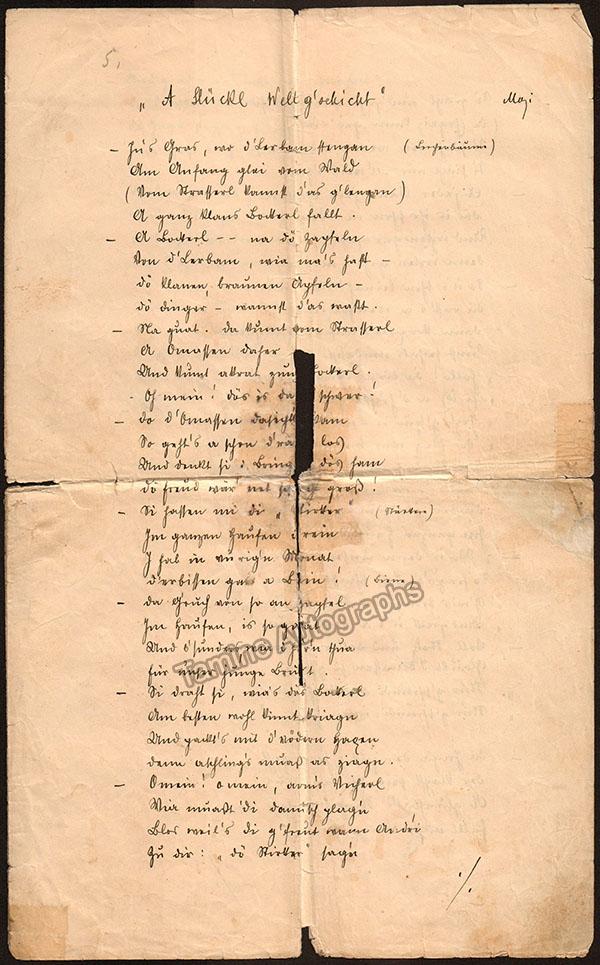 5.
„A Stückl Weltg'schicht" Mazi
– In's Gras, wo d'Lerbam stengan (Lerchenbäume)
Am Anfang glei vom Wald
(Vom Strasserl kannst d'as g'lengan)
A ganz klans Bockerl fallt.
– A Bockerl -- na dö Zapfeln
Von d'Lerbam, wia ma's haßt –
dö klanen, braunen Äpfeln –
dö dinger – wannst d'as waßt.
– Na guat. da kumt vom Strasserl
A Omassen daher
Und kumt akrat zum Bockerl.
- Oh mein! dös is da schwer!
– do d'Omassen kam
So geht's a schon d'ra los
Und denkt si i Bring dös ham
dö freud wär net so groß!
– Si hassen mi di „Stirker" (Stärkere)
Im ganzen Haufen drein
I hab in vurign Monat
d'erbissen gar a Bein! (Biene)
– da Gruch von so an Zapfel
Im Haufen, is so guat
Und b'sunders wia d'
für unser junge Bruat.
– Si draht si, wia's das Bockerl
Am besten wohl kinnt kriagn
Und packt's mit d'vödern Haxen
denn aschlings muaß as ziagn.
– O mein! o mein, arm's Viecherl
Wia muaßt di damisch plag'n
Blos weil's di g'freut wann Andri
Zu dir: „dö Stirker" sag'n
./.
Tamino Autographs